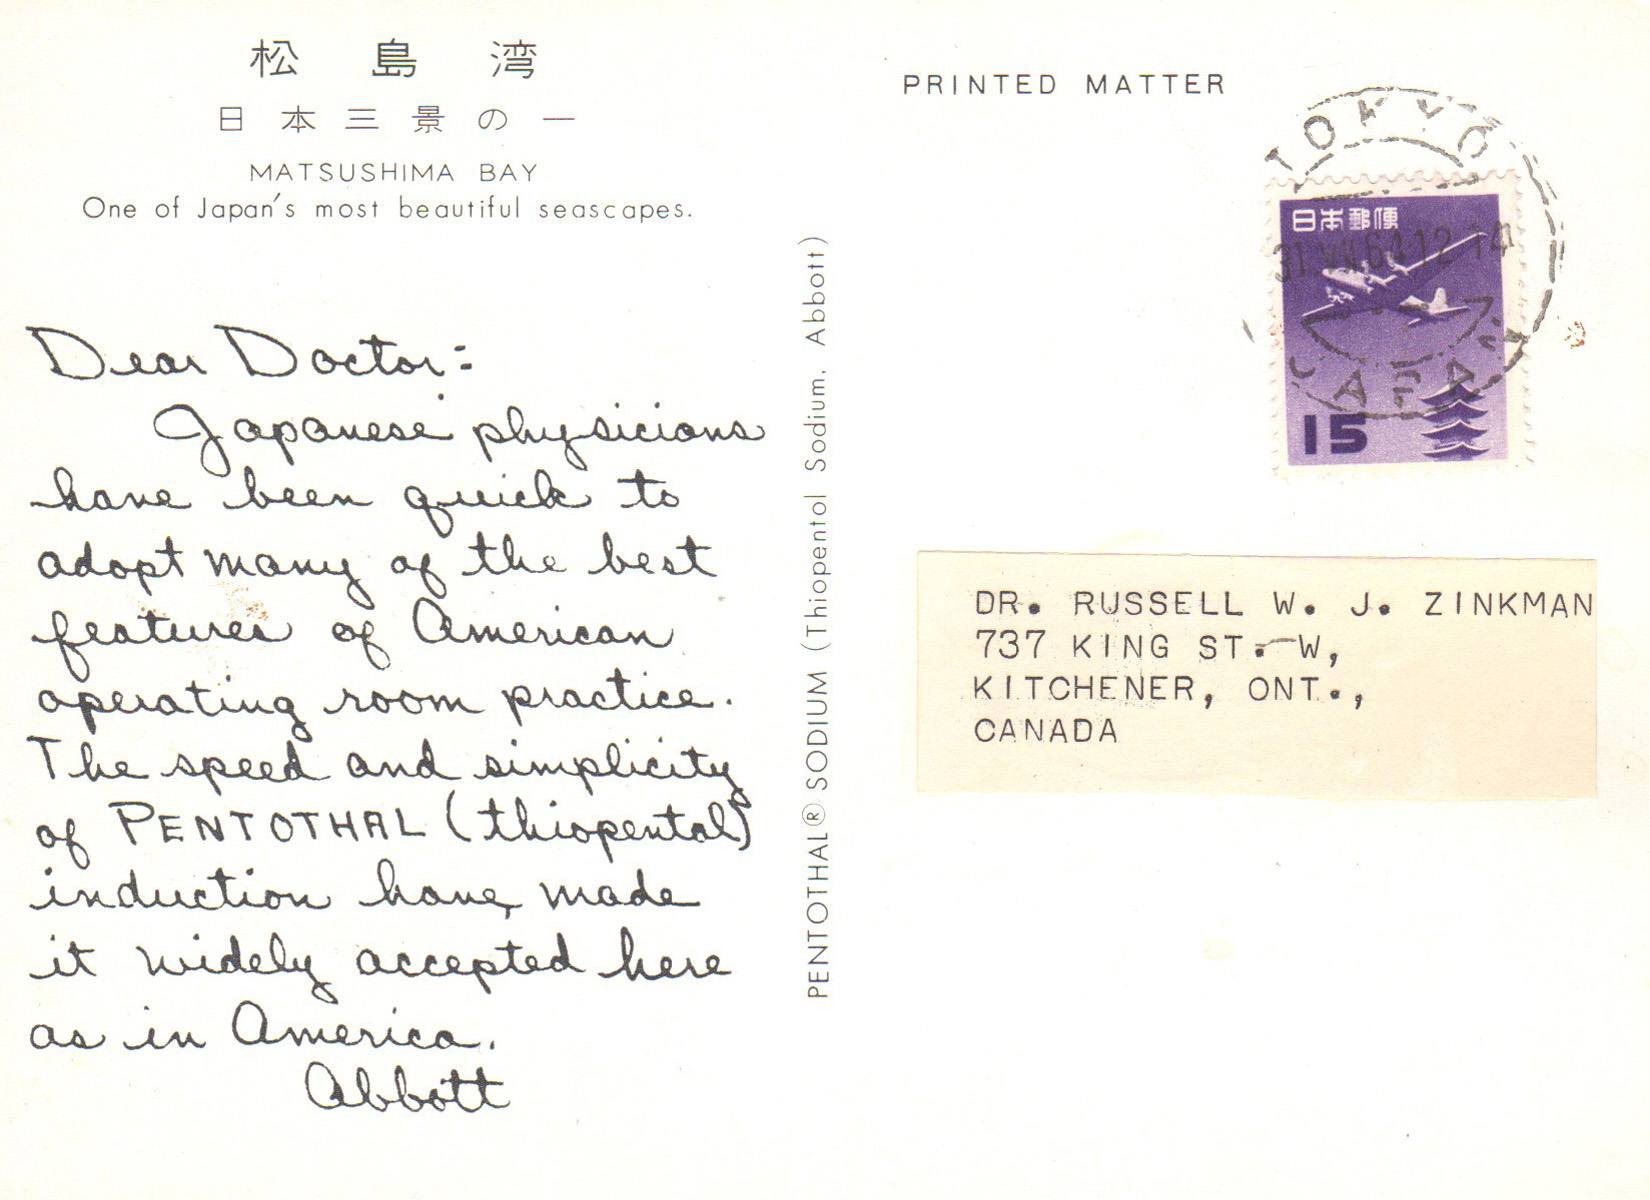 松島湾
日本三景の一
MATSUSHIMA BAY
One of Japan's most beautiful seascapes.
Dear Doctor:
Japanese physicians
have been quick to
adopt many of the best
features of American
operating room practice.
The speed and simplicity
of PENTOTHAL (thiopental)
induction have made
it widely accepted here
as in America.
Abbott
PENTOTHAL® SODIUM (Thiopentol Sodium, Abbott)
PRINTED MATTER
TOKYO
日本郵便
31.VII.64.12-14
JAPAN
15
DR. RUSSELL W. J. ZINKMAN
737 KING ST. W,
KITCHENER, ONT.,
CANADA